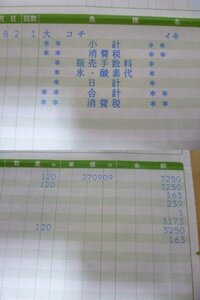 月 日 回数 魚 種 名
8 2 1 大 コチ イキ
＊＊ 小 計 ＊＊
＊＊ 消費税 ＊＊
販売手数料
氷・酸素代
＊ 日 計 ＊
＊＊ 合 計 ＊＊
＊＊ 消費税 ＊＊
数 量 単 価 金 額
120 270909 3250
120 3250
163
239
1
3173
120 3250
163